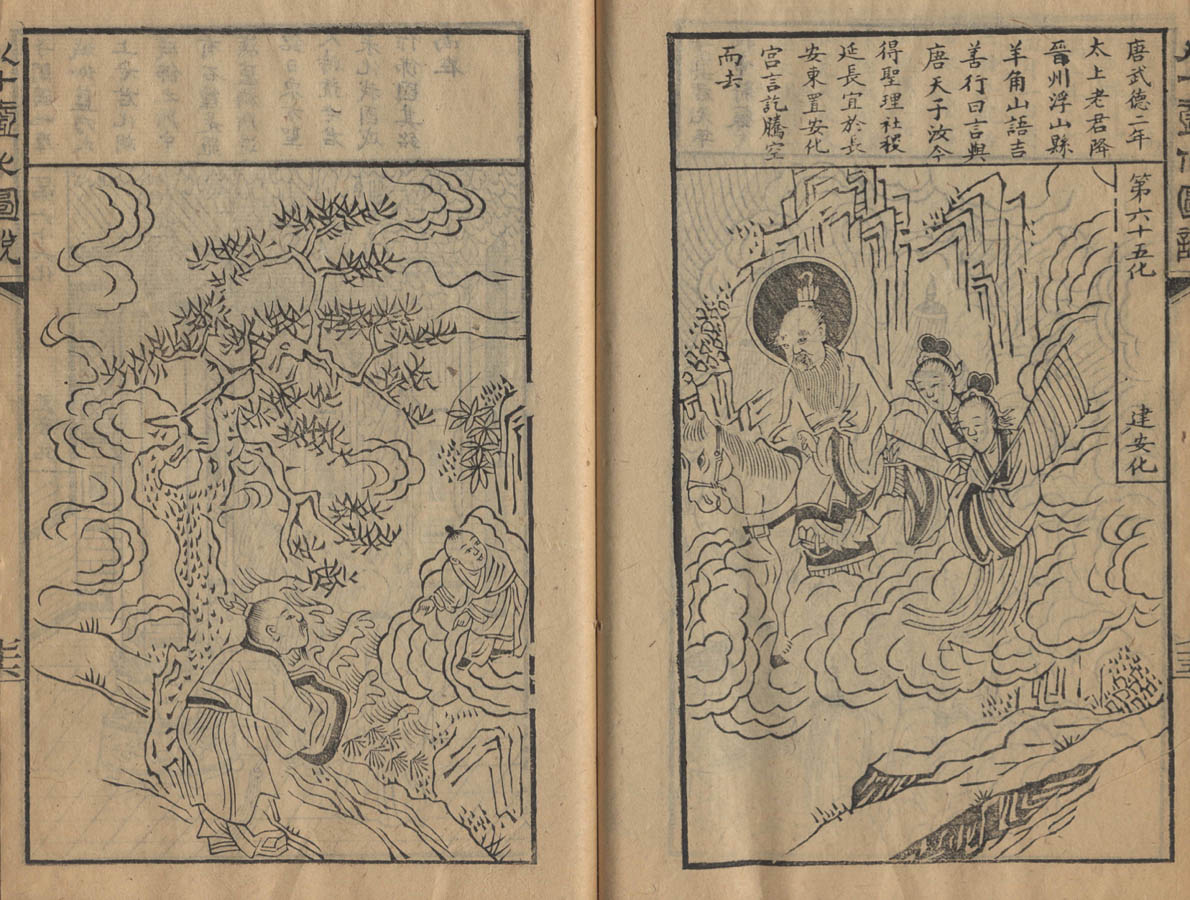 唐武德二年
太上老君降
晉州浮山縣
羊角山語吉
善行曰言與
唐天子汝今
得聖理社稷
延長宜於長
安東置安化
宮言訖騰空
而去
第六十五化
建安化
十壹化圖說